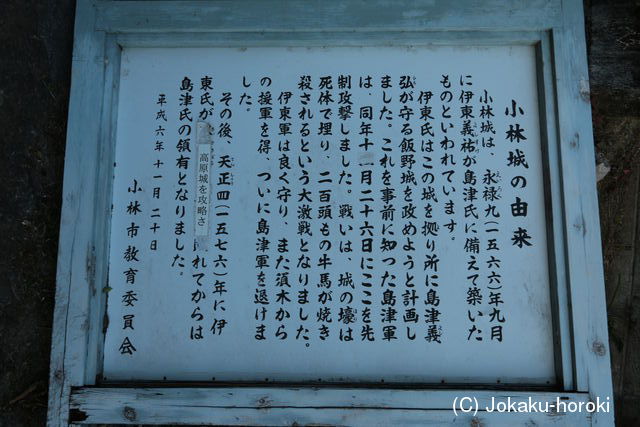 小林城の由来
小林城は、永禄九(一五六六)年九月
に伊東義祐が島津氏に備えて築いた
ものといわれています。
伊東氏はこの城を拠り所に島津義
弘が守る飯野城を攻めようと計画し
ました。これを事前に知った島津軍
は、同年十月二十六日にここを先
制攻撃しました。戦いは、城の壕は
死体で埋り、二百頭もの牛馬が焼き
殺されるという大激戦となりました。
伊東軍は良く守り、また須木から
の援軍を得、ついに島津軍を退けま
した。
その後、天正四(一五七六)年に伊
東氏が高原城を攻略され てからは
島津氏の領有となりました。
平成六年十一月二十日
小林市教育委員会
(C) Jokaku-horoki